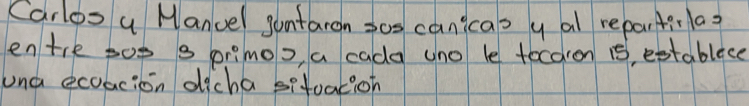 Carlos y Manuel juntaron sus canicas y al repartirlas
entre sus 8 primos, a cada uno le tocaron 15, establece
una ecuación dicha situación